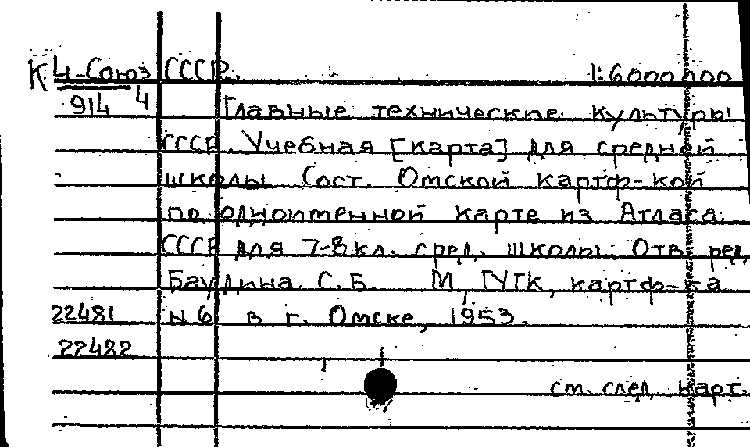 К 4-Союз СССР. 1:6000000
914 4 Главные технические культуры
СССР. Учебная [карта] для средней
школы. Сост. Омской картф-кой
по одноименной карте из Атласа
СССР для 7-8 кл. сред. школы. Отв. ред.
Баудина С.Б. М, ГУГК, картф-ка
22481 N 6 в г. Омске, 1953.
22482
см. след. карт.